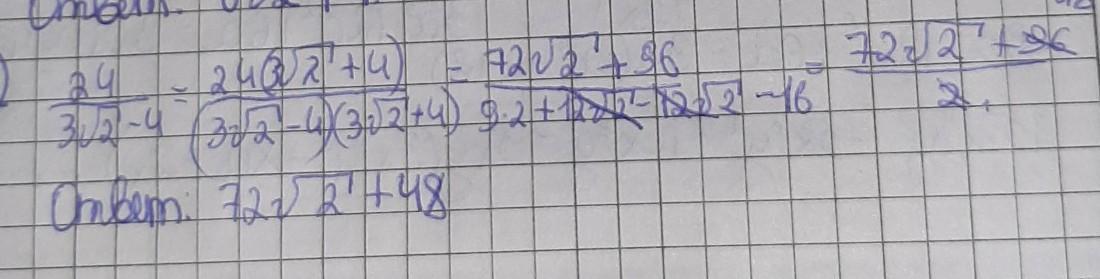 Ответ:
) 24/(3√2-4) = 24(3√2+4)/((3√2-4)(3√2+4)) = (72√2+96)/(9·2+12√2-12√2-16) = (72√2+96)/2.
Ответ: 72√2+48